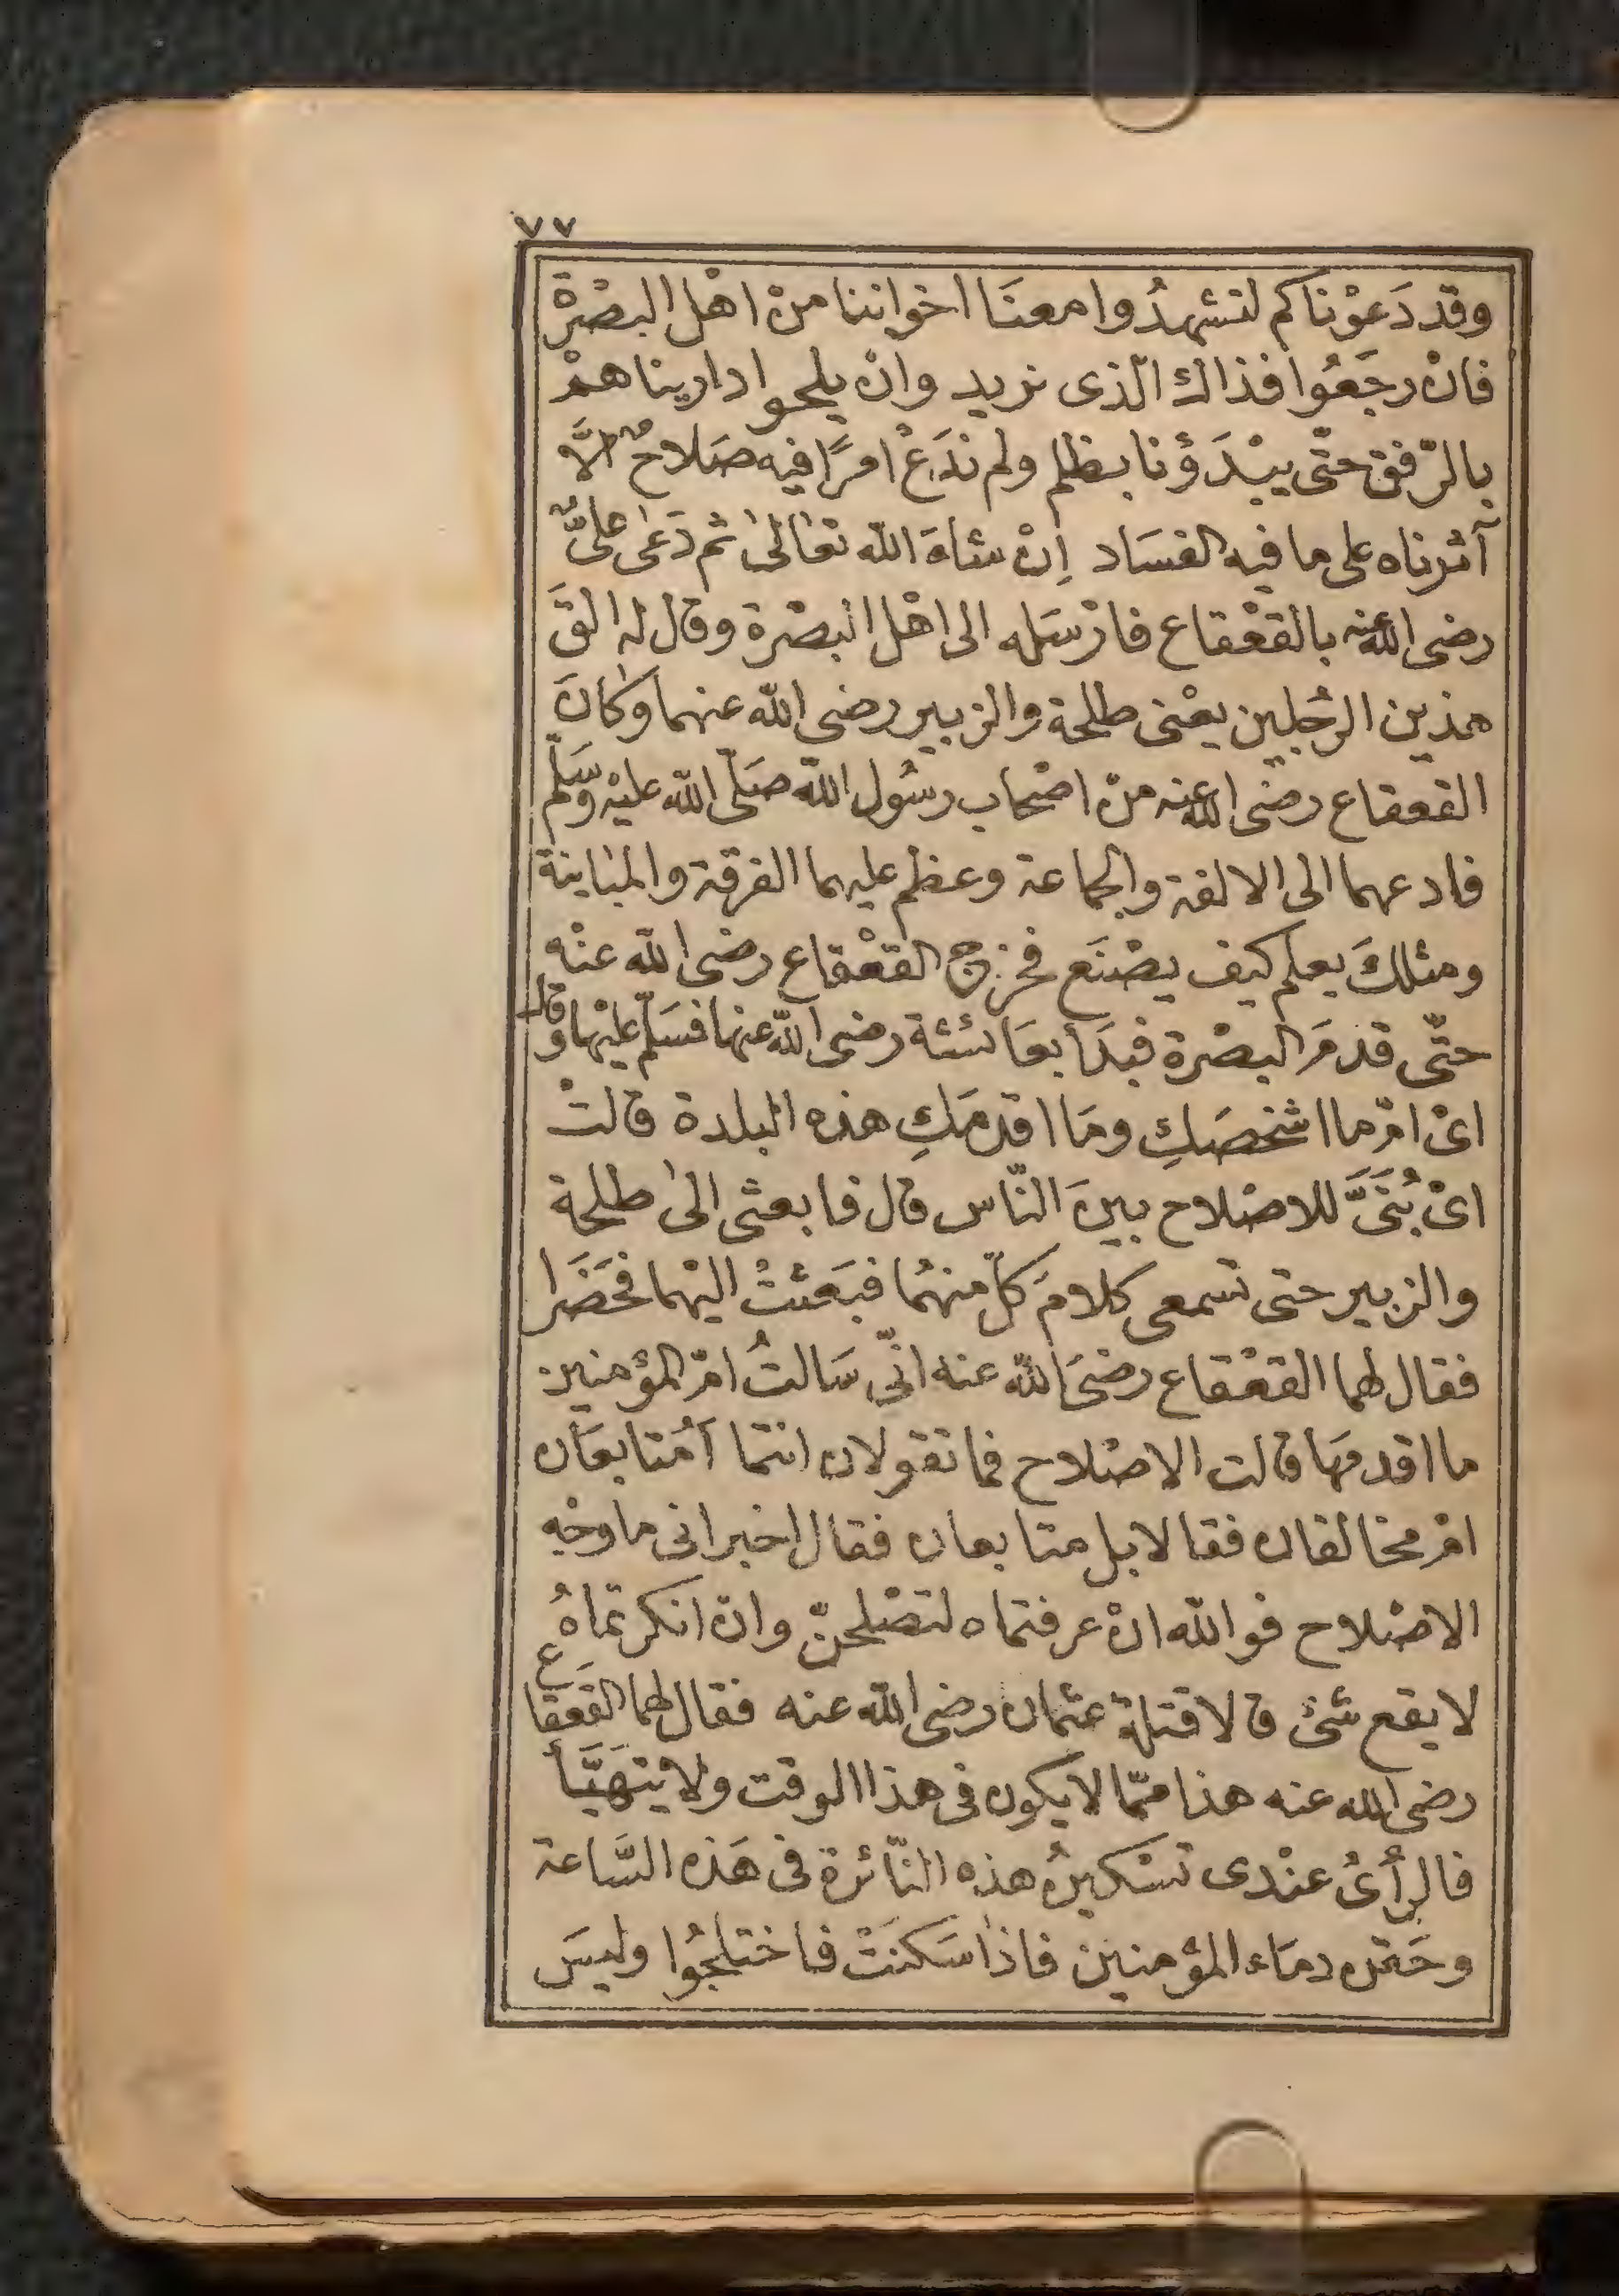 ٧٧
وقد دَعَوْناكم لتشهدُوا معنَا اخواننا منْ اهْل البصْرة
فانْ رجَعُوا فذاك الّذى نريد وانْ يلحوا داريناهمْ
بالرّفق حتّى يبْدَؤنا بظلم ولم ندَعْ امرًا فيه صَلاحٌ الَّا
آثرناه على ما فيه الفسَاد اِنْ شاءَ الله تعَالىٰ ثم دَعٰى علىٌّ
رضى الله عنه بالقعْقاع فارْسَله الى اهْل البصْرة وقال له القَ
هذين الرجُلين يعْنى طلحة والزبير رضى الله عنهما وكانَ
القعقاع رضى الله عنه منْ اصْحاب رسُول الله صَلّى الله عليْه وَسَلّم
فادعهما الى الالفة والجماعة وعظم عليهما الفرقة والمباينة
ومثلكَ يعلم كيف يصْنَع فخرج القعْقاع رضى الله عنْه
حتّى قدمَ البصْرة فبدَأ بعَائشة رضى الله عنها فسَلّم عليْها وقال
اىْ امّ ما اشخصَكِ ومَا اقدمَكِ هذه البلدة قالتْ
اىْ بُنَىَّ للاصْلاح بينَ النّاس قال فابعثى الىٰ طلحة
والزبير حتى تسمعى كلامَ كلّ منهُما فبَعَثتْ اليْهما فحَضَرا
فقال لهما القعْقاع رضىَ الله عنه انّى سَالتُ امّ المؤمنين
ما اقدمَها قالت الاصْلاح فما تقولان انتما اَمُتابعَان
امْ مخالفان فقالا بل متابعان فقال اخبرانى ما وجْه
الاصْلاح فوالله انْ عرفتماه لتصْلحنّ وان انكرتماهُ
لا يقع شئ قالا قتلة عثمان رضى الله عنه فقال لهما القعقاع
رضى الله عنه هذا ممّا لا يكون فى هذا الوقت ولا يتهَيَّأ
فالرأىُ عنْدى تسْكينُ هذه النّائرة فى هَذه السَّاعة
وحَقن دمَاء المؤمنين فاذا سَكنَتْ فاختلجُوا وليسَ